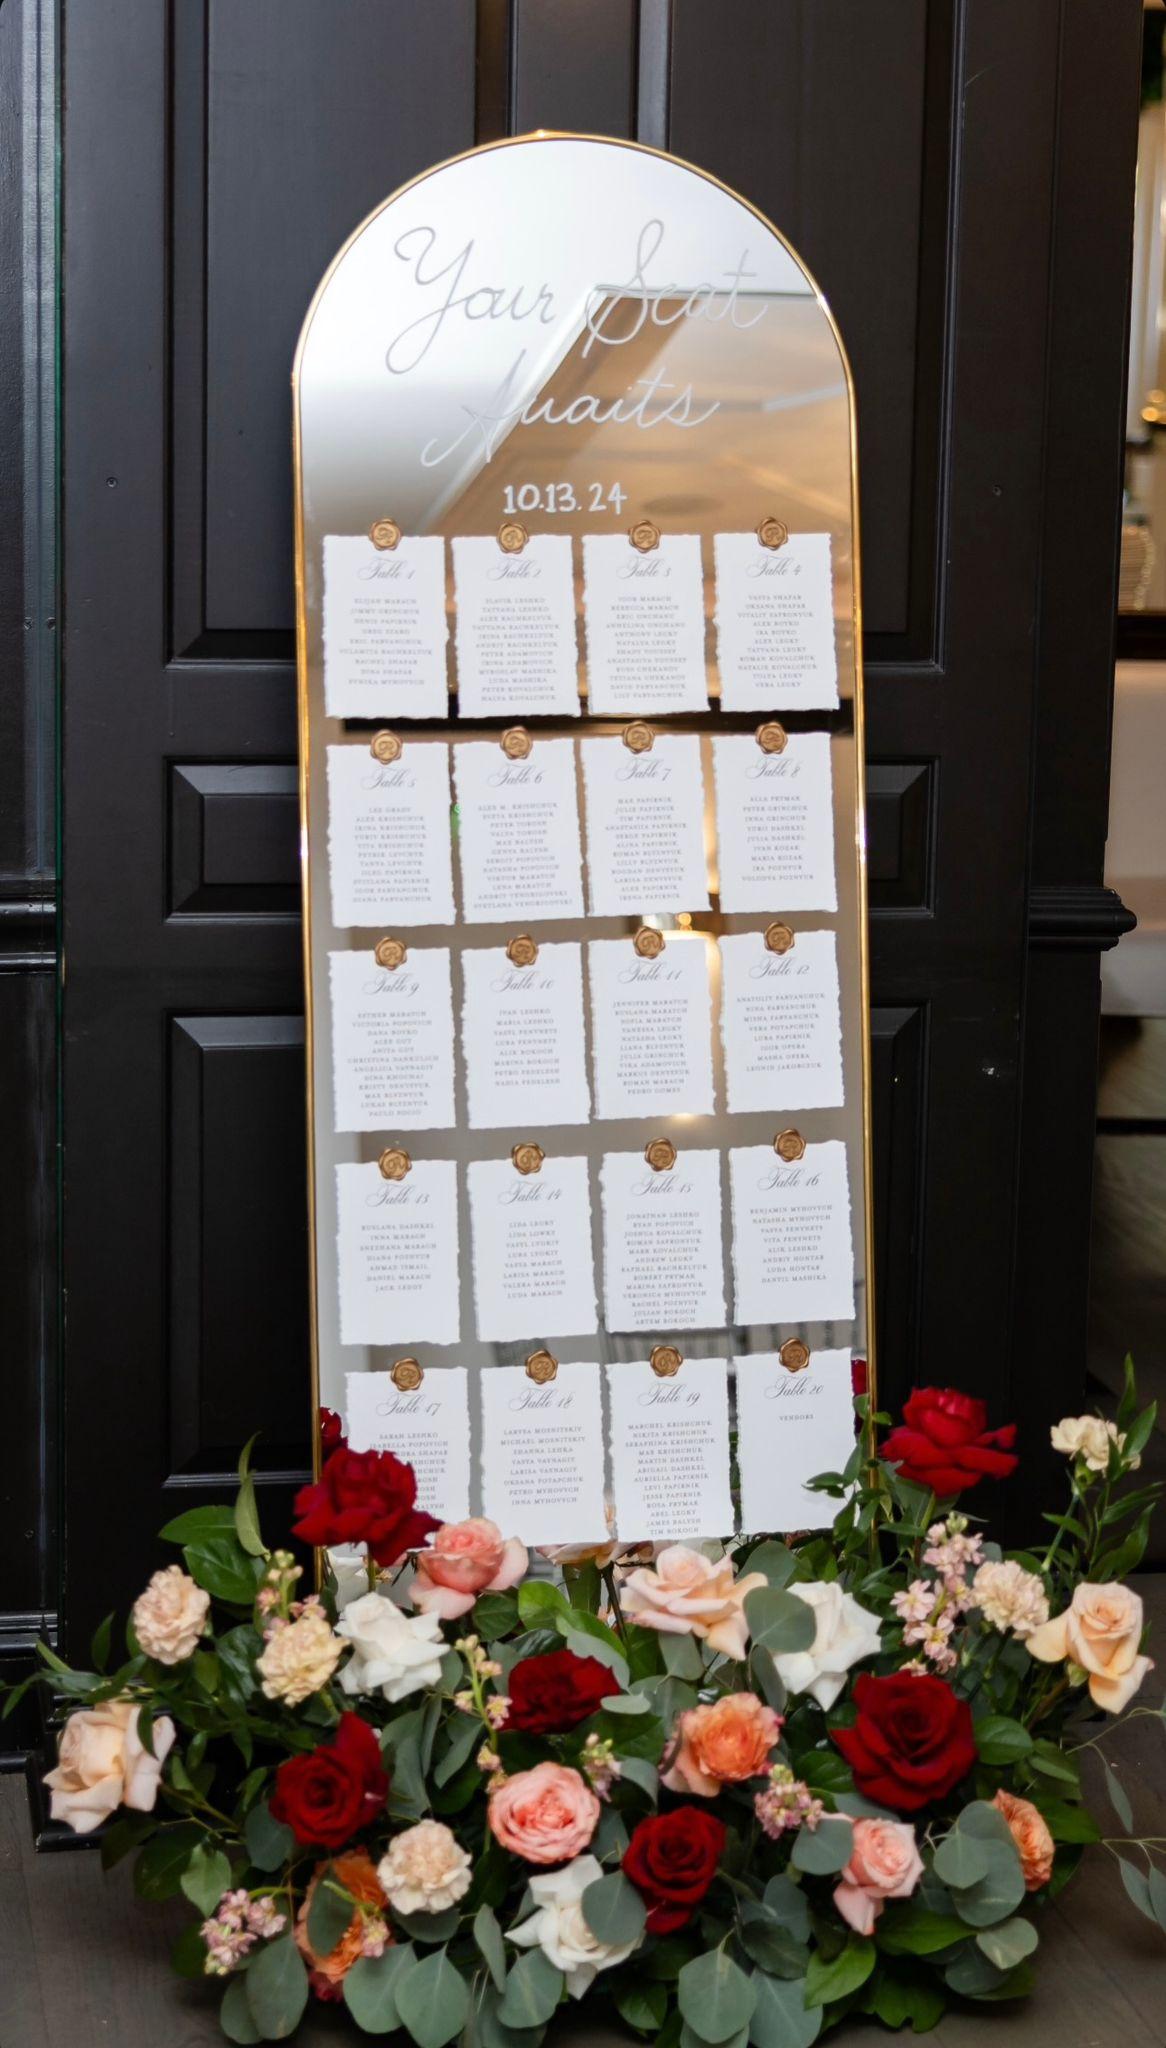 Your Seat
Awaits
10.13.24
Table 1
ELIJAH MARACH
JIMMY GRINCHUK
DENIS PAPIRNIK
GREG SZABO
ERIC PARYANCHUK
VOLAMITA RACHKELYUK
RACHEL SHAFAR
DINA SHAFAR
MYHOVYCH
Table 2
SLAVIK LESHKO
TATYANA LESHKO
ALEX RACHKELYUK
TATYANA RACHKELYUK
IRINA RACHKELYUK
ANDRIY RACHKELYUK
PETER ADAMOVICH
IRINA ADAMOVICH
MYROSLAV MASHIKA
LUDA MASHIKA
PETER KOVALCHUK
HALYA KOVALCHUK
Table 3
IGOR MARACH
REBECCA MARACH
ERIC ONCHANU
ANHELINA ONCHANU
ANTHONY LEGKY
NATALYA LEGKY
SHADY YOUSSEF
ANASTASIYA YOUSSEF
ROSS CHEKANOV
TETIANA CHEKANOV
DAVID PARYANCHUK
LILY PARYANCHUK
Table 4
VASYA SHAFAR
OKSANA SHAFAR
VITALIY SAFRONYUK
ALEX BOYKO
IRA BOYKO
ALEX LEGKY
TATYANA LEGKY
ROMAN KOVALCHUK
NATALIE KOVALCHUK
TOLYA LEGKY
VERA LEGKY
Table 5
LEE GRADY
ALEX KRISHCHUK
IRINA KRISHCHUK
YURIY KRISHCHUK
VITA KRISHCHUK
PETRIK LEVCHYK
TANYA LEVCHYK
OLEG PAPIRNIK
SVITLANA PAPIRNIK
IGOR PARYANCHUK
DIANA PARYANCHUK
Table 6
ALEX M. KRISHCHUK
SVETA KRISHCHUK
PETER TOROSH
VALYA TOROSH
MAX BALYSH
GENYA BALYSH
SERGIY POPOVICH
NATASHA POPOVICH
VIKTOR MARATCH
LENA MARATCH
ANDRIY VENGRIGOVSKI
SVETLANA VENGRIGOVSKI
Table 7
MAX PAPIRNIK
JULIE PAPIRNIK
TIM PAPIRNIK
ANASTASIYA PAPIRNIK
SERGE PAPIRNIK
ALINA PAPIRNIK
ROMAN BLYZNYUK
LILLY BLYZNYUK
BOGDAN DENYSYUK
LARISA DENYSYUK
ALEX PAPIRNIK
IRENA PAPIRNIK
Table 8
ALLA PRYMAK
PETER GRINCHUK
INNA GRINCHUK
YURII DASHKEL
JULIA DASHKEL
IVAN KOZAK
MARIA KOZAK
IRA POZNYUR
VOLODYA POZNYUR
Table 9
ESTHER MARATCH
VICTORIA POPOVICH
DANA BOYKO
ALEX GUT
ANITA GUT
CHRISTINA DANKULICH
ANGELICA VAYNAGIY
DINA KHOCHAI
KRISTY DENYSYUK
MAX BLYZNYUK
LUKAS BLYZNYUK
PAULO ROCIO
Table 10
IVAN LESHKO
MARIA LESHKO
VASYL FENYNETS
LUBA FENYNETS
ALIK ROKOCH
MARINA ROKOCH
PETRO FEDELESH
NADIA FEDELESH
Table 11
JENNIFER MARATCH
RUSLANA MARATCH
SOFIA MARATCH
VANESSA LEGKY
NATASHA LEGKY
LIANA BLYZNYUK
JULIA GRINCHUK
VIKA ADAMOVICH
MARKUS DENYSYUK
ROMAN MARACH
PEDRO GOMES
Table 12
ANATOLIY PARYANCHUK
NINA PARYANCHUK
MISHA PARYANCHUK
VERA POTAPCHUK
LUBA PAPIRNIK
IGOR OPERA
MASHA OPERA
LEONID JAKOBCZUK
Table 13
RUSLANA DASHKEL
INNA MARACH
SNEZHANA MARACH
DIANA POZNYUR
AHMAD ISMAIL
DANIEL MARACH
JACK LEDDY
Table 14
LIDA LEGKY
LIDA LOWRY
VASYL LYOKIT
LUBA LYOKIT
VASYA MARACH
LARISA MARACH
VALERA MARACH
LUDA MARACH
Table 15
JONATHAN LESHKO
RYAN POPOVICH
JOSHUA KOVALCHUK
ROMAN SAFRONYUK
MARK KOVALCHUK
ANDREW LEGKY
RAPHAEL RACHKELYUK
ROBERT PRYMAK
MARINA SAFRONYUK
VERONICA MYHOVYCH
RACHEL POZNYUR
JULIAN ROKOCH
ARTEM ROKOCH
Table 16
BENJAMIN MYHOVYCH
NATASHA MYHOVYCH
VASYA FENYNETS
VITA FENYNETS
ALIK LESHKO
ANDRIY HONTAR
LUDA HONTAR
DANYIL MASHIKA
Table 17
SARAH LESHKO
ISABELLA POPOVICH
SHAFAR
Table 18
LARYSA MOSNITSKIY
MICHAEL MOSNITSKIY
ZHANNA LEHKA
VASYA VAYNAGIY
LARISA VAYNAGIY
OKSANA POTAPCHUK
PETRO MYHOVYCH
INNA MYHOVYCH
Table 19
MARCHEL KRISHCHUK
NIKITA KRISHCHUK
SERAPHINA KRISHCHUK
MAX KRISHCHUK
MARTIN DASHKEL
ABIGAIL DASHKEL
AURIELLA PAPIRNIK
LEVI PAPIRNIK
JESSE PAPIRNIK
ROSA PRYMAK
ABEL LEGKY
JAMES BALYSH
TIM ROKOCH
Table 20
VENDORS